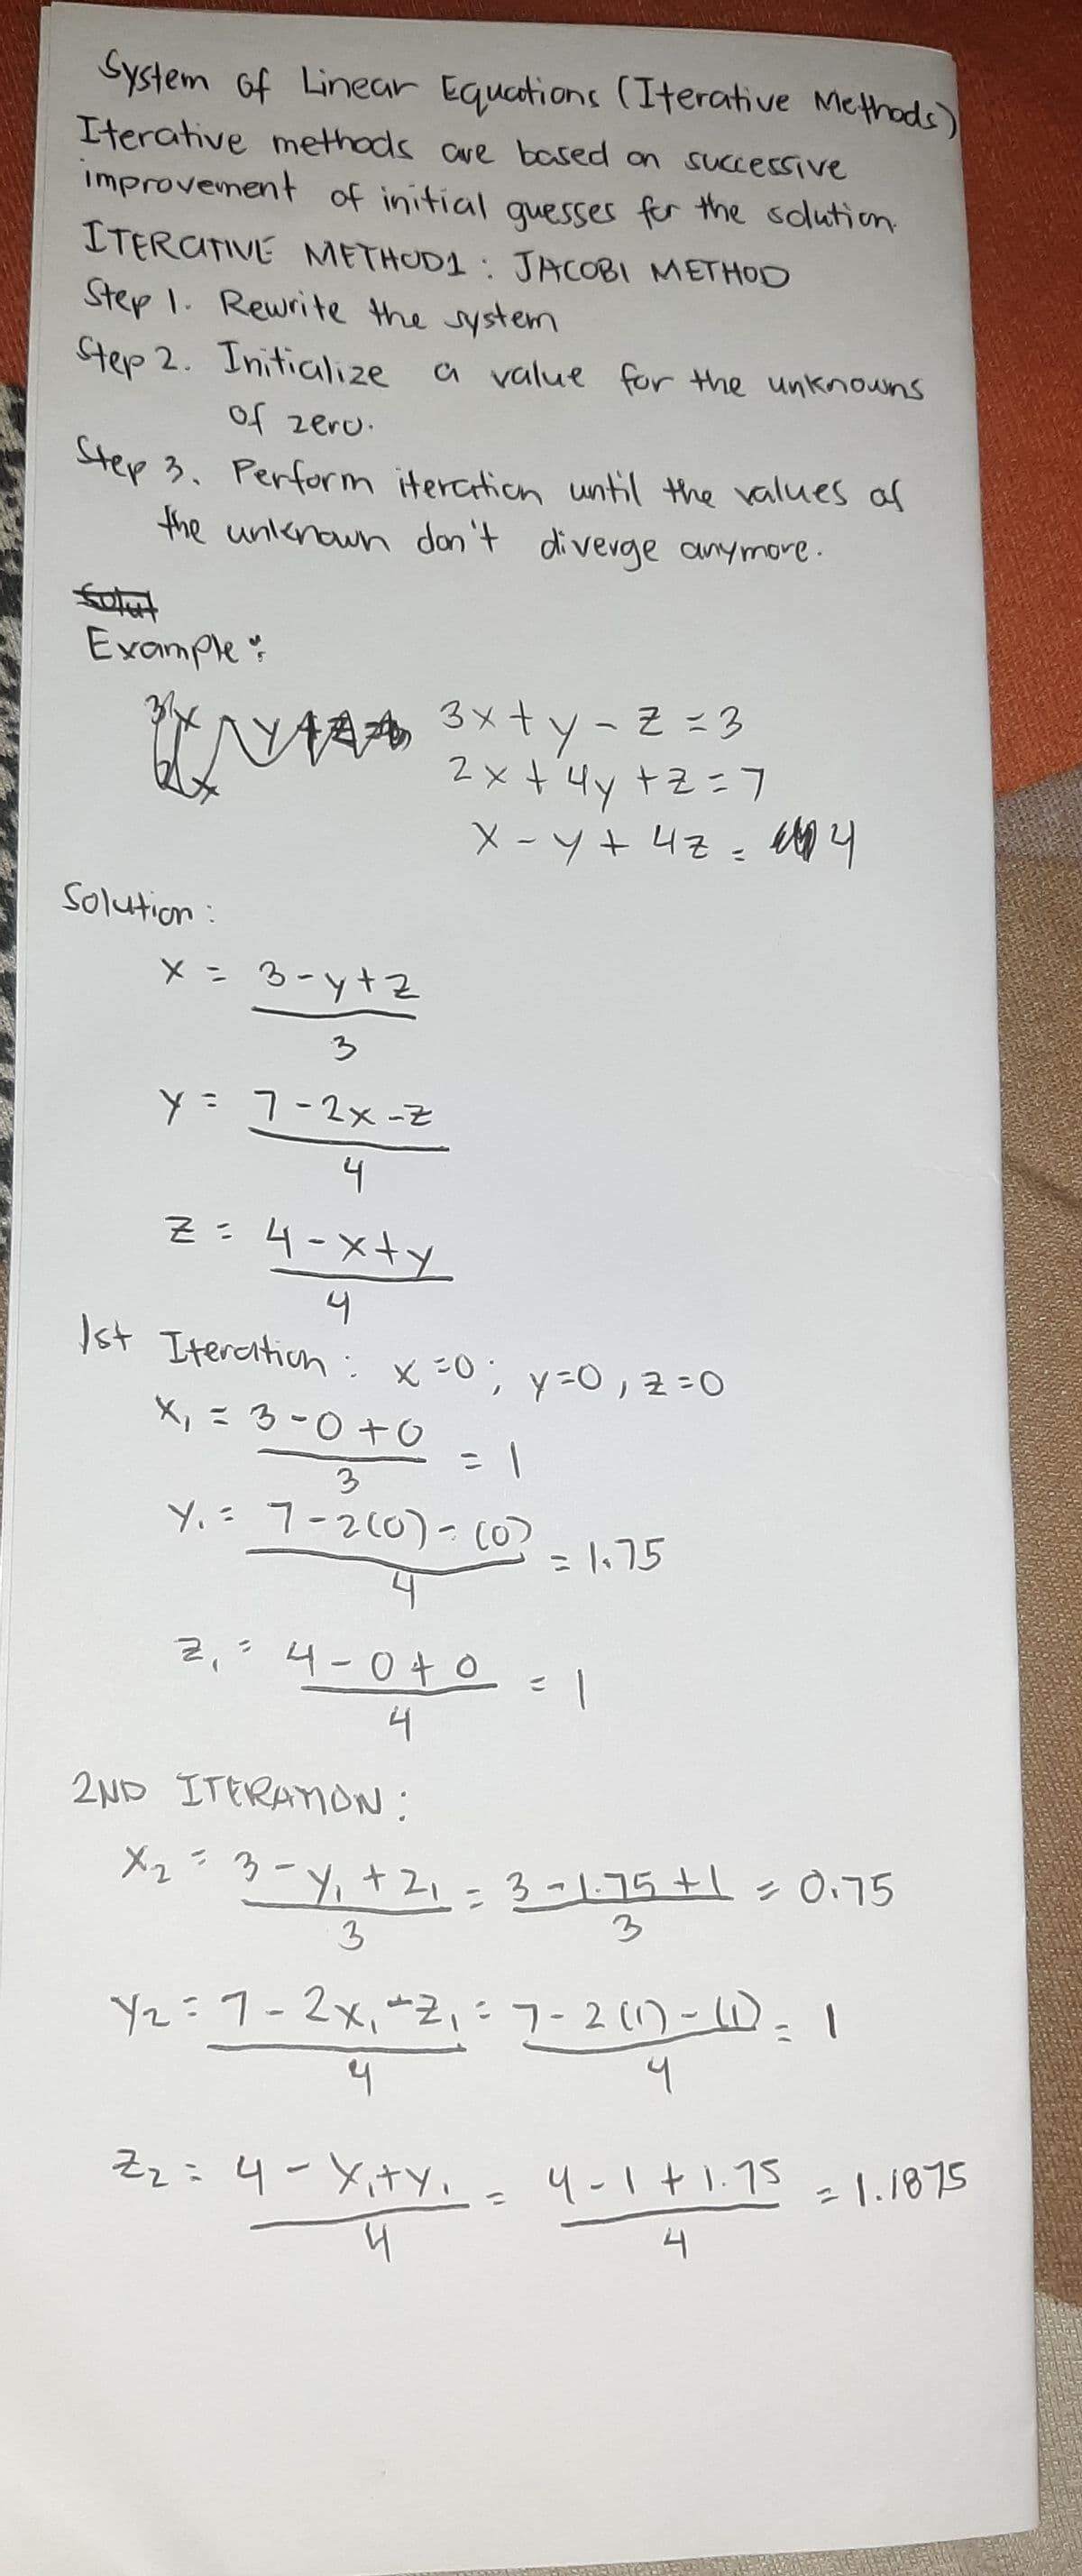 System of Linear Equations (Iterative Methods)
Iterative methods are based on successive
improvement of initial guesses for the solution.
ITERATIVE METHOD 1: JACOBI METHOD
Step 1. Rewrite the system
Step 2. Initialize a value for the unknowns
of zero.
Step 3. Perform iteration until the values of
the unknown don't diverge anymore.
Example:
3x + y - z = 3
2x + 4y + z = 7
x - y + 4z = 4
Solution:
x = 3 - y + z
3
y = 7 - 2x - z
4
z = 4 - x + y
4
1st Iteration: x = 0; y = 0, z = 0
x₁ = 3 - 0 + 0 = 1
3
y₁ = 7 - 2(0) - (0) = 1.75
4
z₁ = 4 - 0 + 0 = 1
4
2ND ITERATION:
x₂ = 3 - y₁ + z₁ = 3 - 1.75 + 1 = 0.75
3 3
y₂ = 7 - 2x₁ - z₁ = 7 - 2(1) - (1) = 1
4 4
z₂ = 4 - x₁ + y₁ = 4 - 1 + 1.75 = 1.1875
4 4